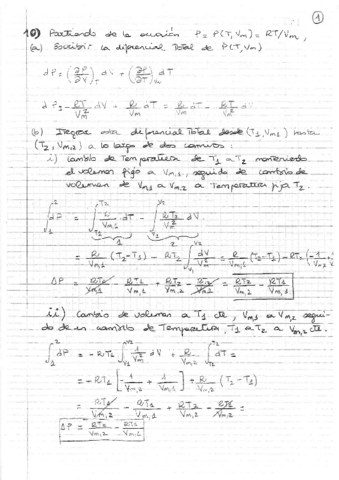 ①
10) Partiendo de la ecuación P = P(T, Vm) = RT/Vm,
(a) Escribir la diferencial Total de P(T, Vm)
dP = (∂P/∂V)_T dV + (∂P/∂T)_Vm dT
dP = - RT/Vm² dV + R/Vm dT = R/Vm dT - RT/Vm² dV.
(b) Integrar esta diferencial Total desde (T1, Vm,1) hasta
(T2, Vm,2) a lo largo de dos caminos:
i) Cambio de Temperatura de T1 a T2 manteniendo
el volumen fijo a Vm,1, seguido de cambio de
volumen de Vm,1 a Vm,2 a Temperatura fija T2.
∫₁² dP = ∫_T1^T2 R/Vm,1 dT - ∫_V1^V2 RT2/Vm² dV.
1 2
= R/Vm,1 (T2-T1) - RT2 ∫_V1^V2 dV/Vm² = R/Vm,1 (T2-T1) - RT2 (-1/Vm,2
ΔP = RT2/Vm,1 - RT1/Vm,1 + RT2/Vm,2 - RT2/Vm,1 = RT2/Vm,2 - RT1/Vm,1
ii) Cambio de volumen a T1 cte, Vm,1 a Vm,2 segui-
do de un cambio de Temperatura, T1 a T2 a Vm,2 cte.
∫₁² dP = - RT1 ∫_V1^V2 1/Vm² dV + R/Vm,2 ∫_T1^T2 dT =
= - RT1 [-1/Vm,2 + 1/Vm,1] + R/Vm,2 (T2-T1)
= RT1/Vm,2 - RT1/Vm,1 + RT2/Vm,2 - RT1/Vm,2 =
ΔP = RT2/Vm,2 - RT1/Vm,1